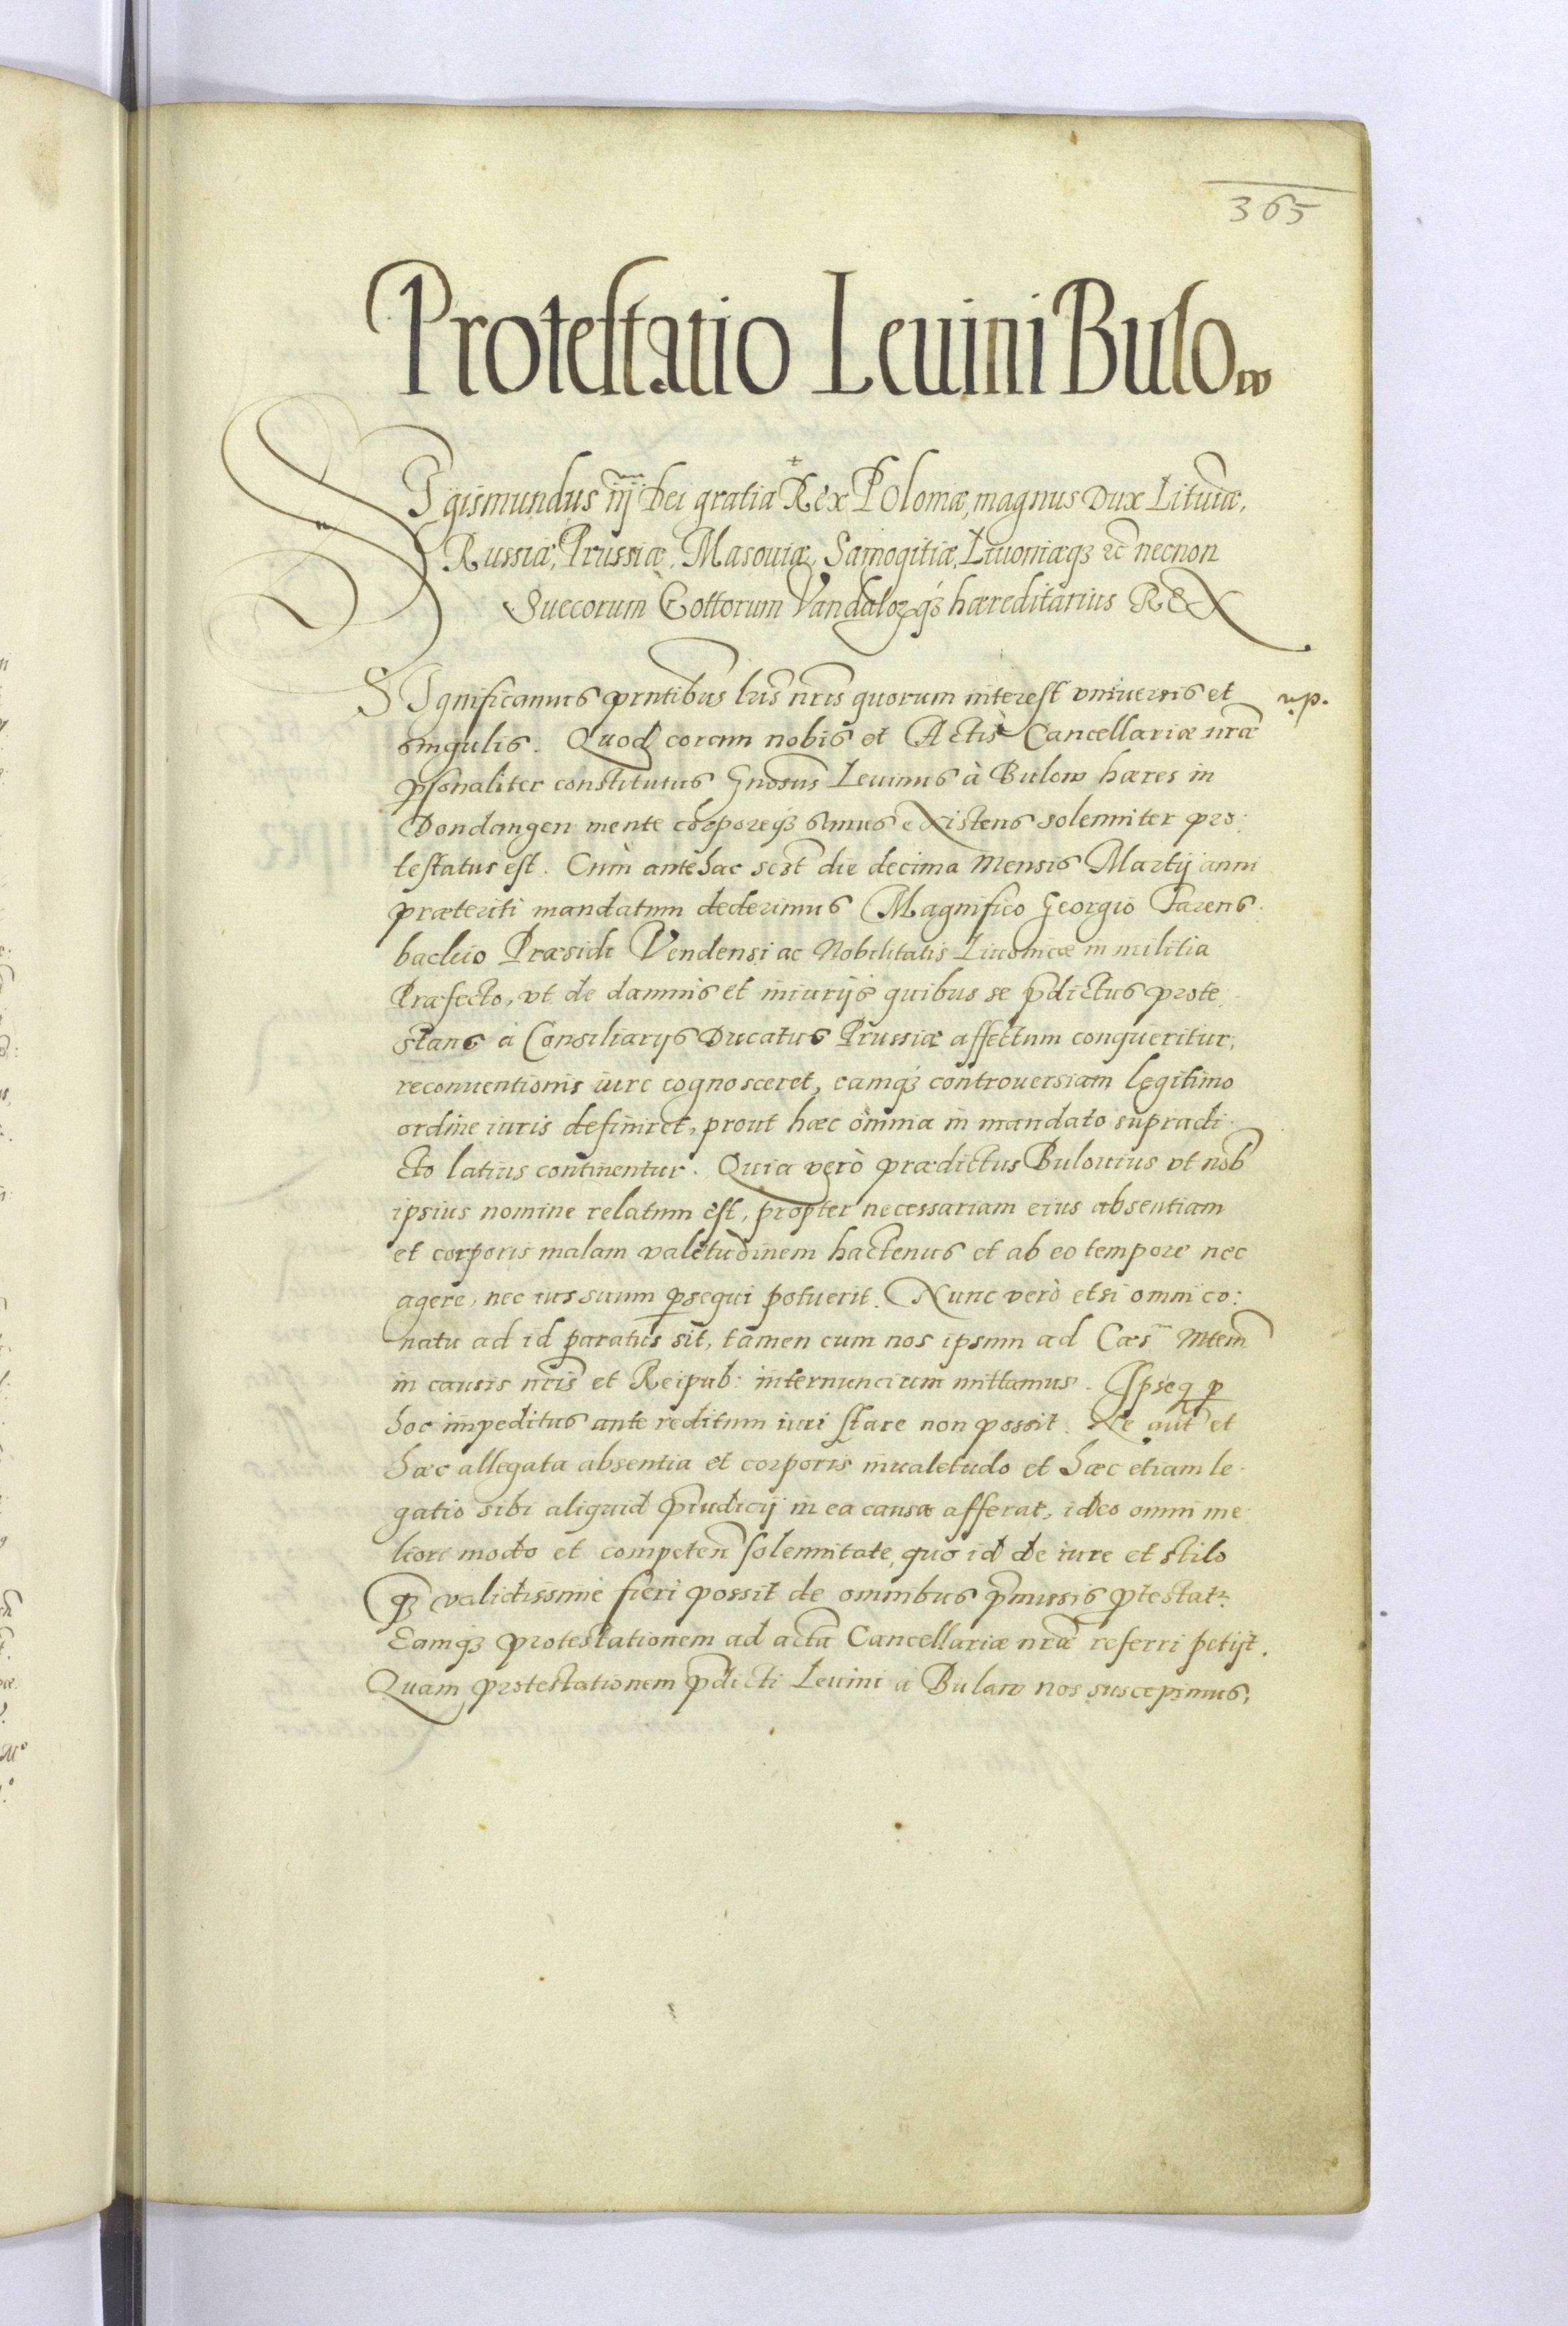 365
Protestatio Leuini Bulow
SIgismundus iij Dei gratia Rex POloniæ, magnus Dux Lituaniæ,
Russiæ, Prussiæ, Masouiæ, Samogitiæ, Liuoniæq3 &c necnon
Suecorum Gottorum Vandaloꝝq3 hæreditarius REX
SIgnificamus pn̄tibus lr̄is nr̄is quorum interest vniuersis et
singulis. Quod coram nobis et Actis Cancellariæ nr̄æ
ꝑsonaliter constitutus Gn̄osus Leuinus à Bulow hæres in
Dondangen mente corporeq3 sanus eXistens solenniter pro:
testatus est. Cùm antehac die decima Mensis Martij anni
præteriti mandatum dederimus Magnifico Georgio Farens
bachio Præsidi Vendensi ac Nobilitatis Liuonicæ in militia
Præfecto, vt de damnis et iniurijs quibus se p̄dictus prote
stans à Consiliarijs Ducatus Prussiæ affectum conqueritur,
reconuentionis iure cognosceret, eamq3 controuersiam legitimo
ordine iuris definiret, prout hæc omnia in mandato supradi
cto latius continentur. Quia verò prædictus Bulouius vt nob
ipsius nomine relatum est, propter necessariam eius absentiam
et corporis malam valetudinem hactenus et ab eo tempore nec
agere, nec ius suum ꝑsequi potuerit. Nunc verò etsi omni co:
natu ad id paratus sit, tamen cum nos ipsum ad Cæs. Mtem
in causis nr̄is et Reipub: internuncium mittamus. Ipseq ꝑ
hoc impeditus ante reditum iuri stare non possit. Ne aut et
hæc allegata absentia et corporis inualetudo et hæc etiam le
gatio sibi aliquid p̄iudicij in ea causa afferat, ideo omni me
liori modo et competen̄ solennitate, quo id de iure et stilo
q3 validissime fieri possit de omnibus p̄missis ꝓtestatr.
Eamq3 protestationem ad acta Cancellariæ nr̄æ referri petijt.
Quam protestationem p̄dicti Leuini à Bulaw nos suscepimus,